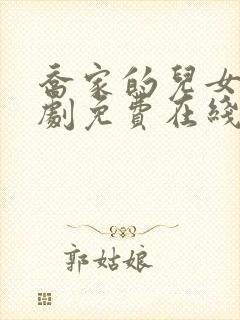 喬家的兒女
劇免費在綫
郭姑娘